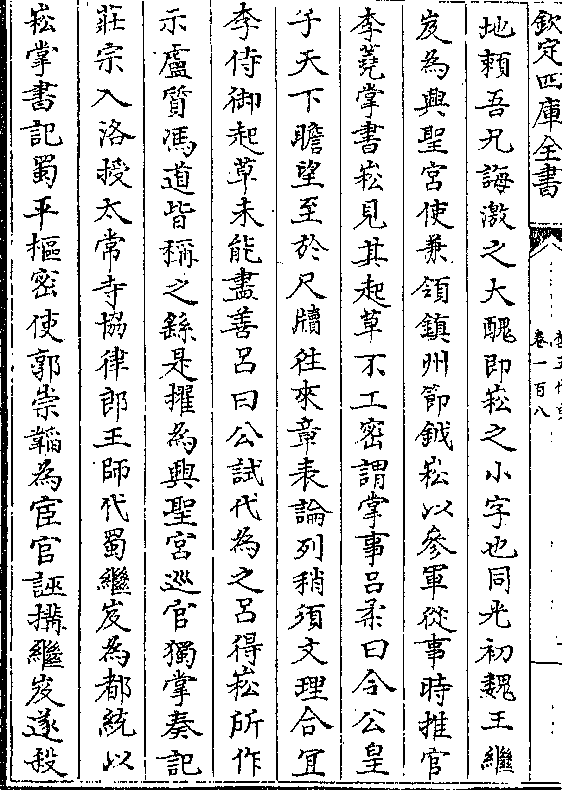 欽定四庫全書
卷一百八
地賴吾兄誨激之大醜即崧之小字也同光初魏王繼
岌為興聖宮使兼領鎮州節鉞崧以參軍從事時推官
李蕘掌書崧見其起草不工密謂掌事呂柔曰令公皇
子天下瞻望至於尺牘往來章表論列稍須文理合宜
李侍御起草未能盡善呂曰公試代為之呂得崧所作
示盧質馮道皆稱之繇是擢為興聖宮巡官獨掌奏記
莊宗入洛授太常寺協律郎王師伐蜀繼岌為都統以
崧掌書記蜀平樞密使郭崇韜為宦官誣搆繼岌遂殺